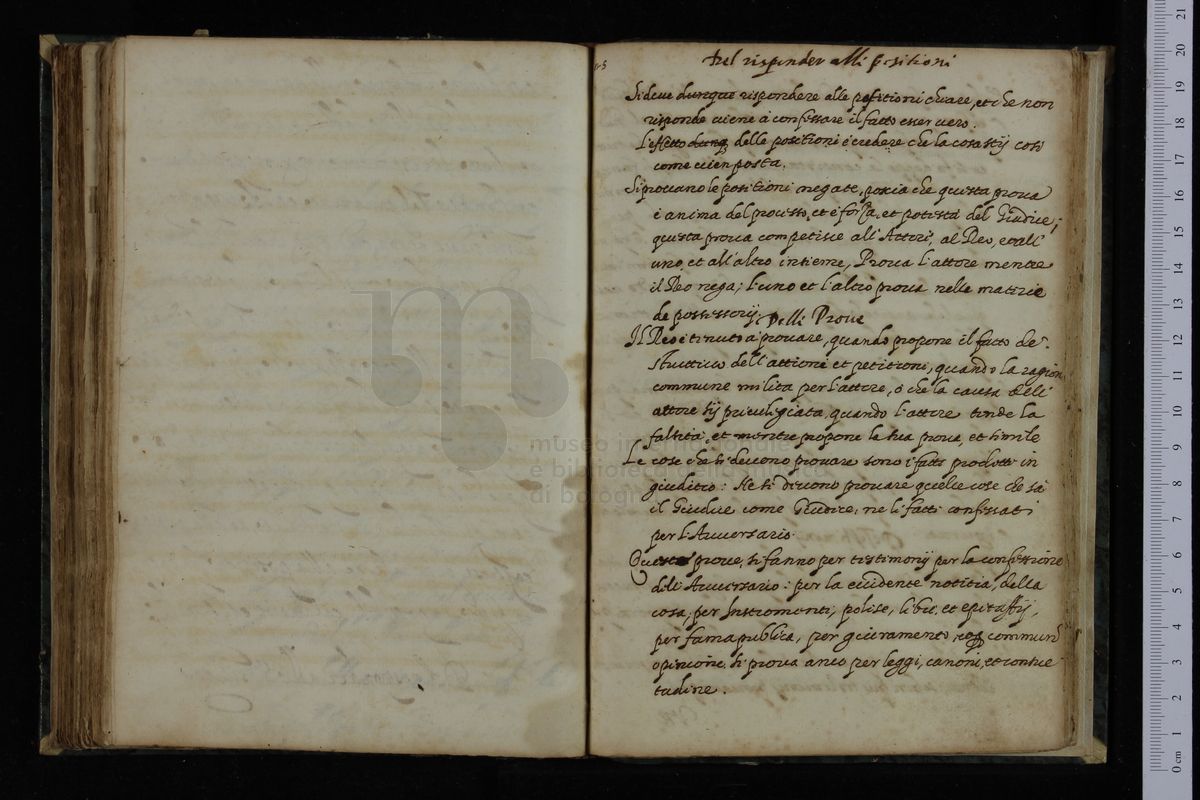 Del risponder alli positioni
Si deve dunque rispondere alle positioni chiare, et che non
risponde viene à confessare il fatto esser vero.
L'effetto dunq. delle positioni è credere che la cosa sij cosi
come vien posta.
Si provano le positioni negate, poscia che questa prova
è anima del processo, et è forza, et potestà del Giudice;
questa prova competisce all'Attore, al Reo, et all'
uno, et all'altro insieme, Prova l'attore mentre
il Reo nega; l'uno et l'altro prova nelle materie
de possessorij. Delli Prove
Il Reo è tenuto à provare, quando propone il fatto de
struttivo dell'attione et petitione, quando la ragion
commune milita per l'attore, o che la causa dell'
attore sij privilegiata, quando l'attore tende la
falsità, et mentre propone la sua prova, et simile
Le cose che si devono provare sono i fatti prodotti in
giuditio: Ne si devono provare quelle cose che sà
il Giudice come Giudice, ne li fatti confessati
per l'Avversario.
Queste prove, si fanno per testimonij per la confessione
dell'Avversario: per la evidente notitia, della
cosa, per Instromenti, polise, libri, et epitaffij,
per fama publica, per giuramento, commun
opinione, si prova anco per leggi, canoni, et consue
tudine.
museo internazionale
e biblioteca della musica
di bologna
0 cm 1 2 3 4 5 6 7 8 9 10 11 12 13 14 15 16 17 18 19 20 21